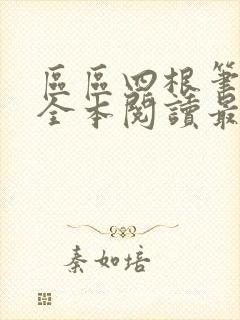 區區四根筆
全本閱讀最
秦如培